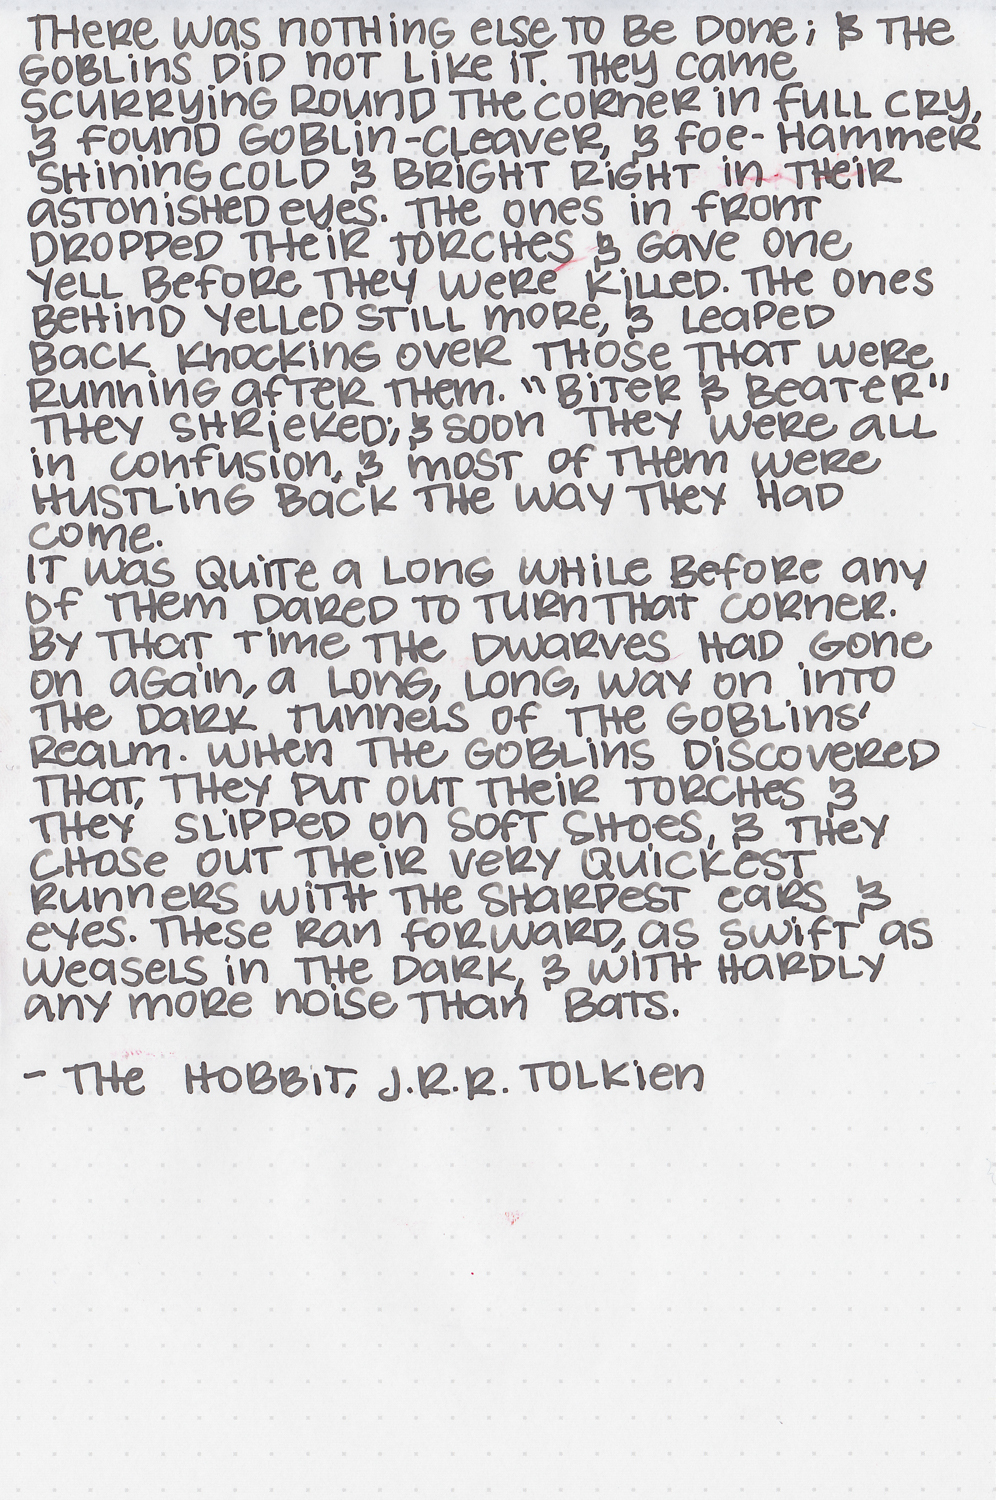 There was nothing else to be done; & the
goblins did not like it. They came
scurrying round the corner in full cry,
& found Goblin-cleaver, & Foe-Hammer
shining cold & bright right in their
astonished eyes. The ones in front
dropped their torches & gave one
yell before they were killed. The ones
behind yelled still more, & leaped
back knocking over those that were
running after them. "Biter & Beater"
they shrieked; & soon they were all
in confusion, & most of them were
hustling back the way they had
come.
It was quite a long while before any
of them dared to turn that corner.
By that time the dwarves had gone
on again, a long, long, way on into
the dark tunnels of the goblins'
realm. When the goblins discovered
that, they put out their torches &
they slipped on soft shoes, & they
chose out their very quickest
runners with the sharpest ears &
eyes. These ran forward, as swift as
weasels in the dark, & with hardly
any more noise than bats.
- The Hobbit, J.R.R. Tolkien